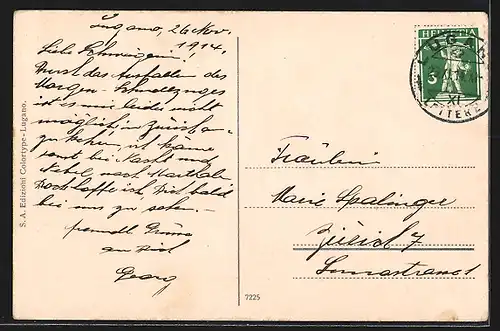 Lugano, 26 Nov.
1914.
Liebe Schwägerin!
Durch das Ausfallen des
Morgen-Schnellzuges
ist es mir leider nicht
möglich in Zürich an-
zu kehren, ich käme
sonst bei Nacht und
Nebel nach
Doch hoffe ich, Dich bald
bei uns zu sehen.-
freundl. Grüsse
an Dich
Georg
S. A. Edizioni Colortype - Lugano.
7225
HELVETIA
5
LUGANO
XI
LETTERE
Fräulein
Marie Spalinger
Zürich 7